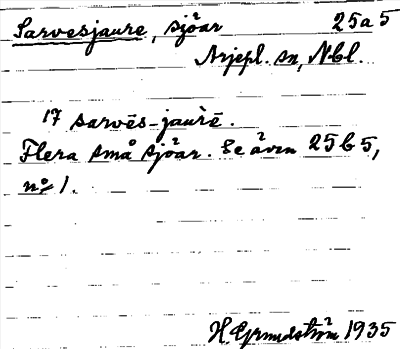 Sarvesjaure, sjöar 25a5
Arjepl. sn, Nbl.
17 sarvēs-jaurē.
Flera små sjöar. Se även 25b5,
nº 1.
H. Grundström 1935